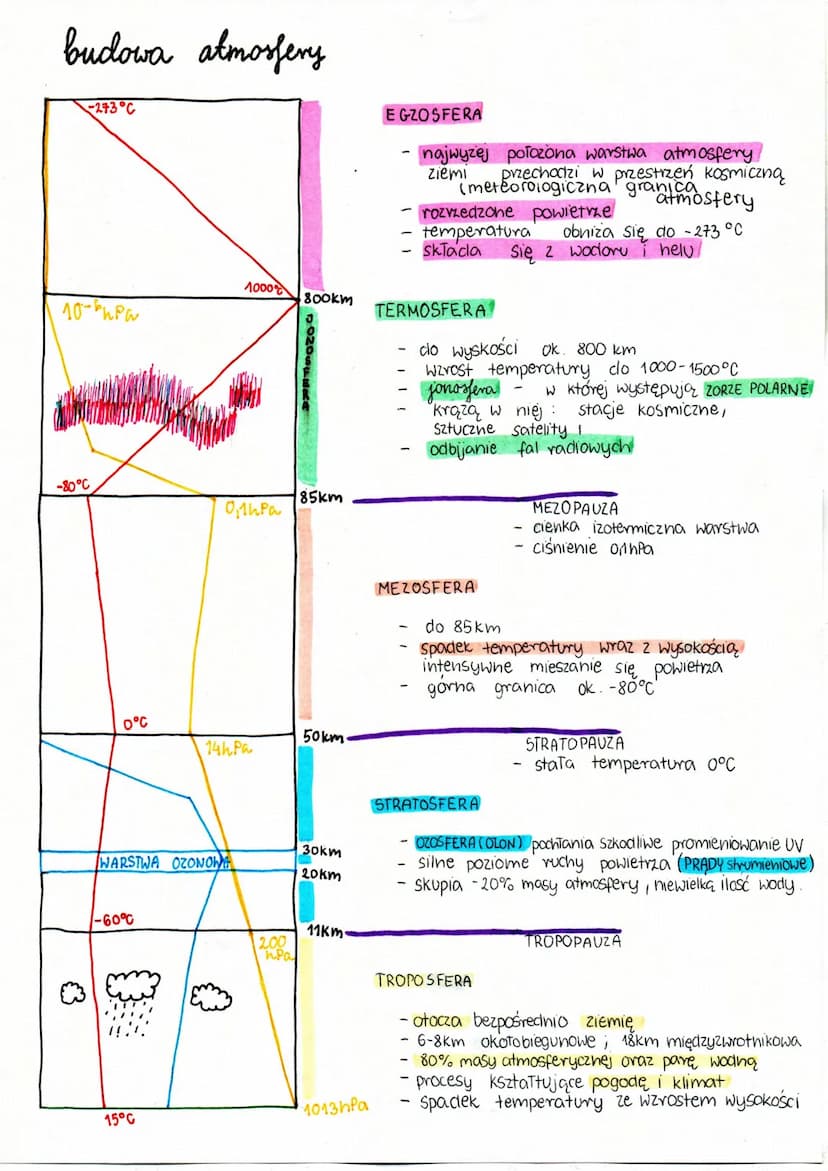 budowa atmosfery
-273°C
EGZOSFERA
- najwyżej położona warstwa atmosfery
ziemi przechodzi w przestrzeń kosmiczną
(meteorologiczna granica
atmosfery
- rozrzedzone powietrze
- temperatura obniża się do -273°C
- składa się z wodoru i helu
1000°C
800km
10⁻⁶hPa
TERMOSFERA
JONOSFERA
- do wyskości ok. 800 km
- wzrost temperatury do 1000-1500°C
- jonosfera - w której występują ZORZE POLARNE
- krążą w niej: stacje kosmiczne,
sztuczne satelity i
- odbijanie fal radiowych
-80°C
85km
0,1hPa
MEZOPAUZA
- cienka izotermiczna warstwa
- ciśnienie 0,1hPa
MEZOSFERA
- do 85km
- spadek temperatury wraz z wysokością
intensywne mieszanie się powietrza
- górna granica ok. -80°C
0°C
50km
14hPa
STRATOPAUZA
- stała temperatura 0°C
STRATOSFERA
- OZOSFERA (OZON) pochłania szkodliwe promieniowanie UV
30km
WARSTWA OZONOWA
- silne poziome ruchy powietrza (PRĄDY strumieniowe)
20km
- skupia -20% masy atmosfery, niewielką ilość wody.
-60°C
11km
200
hPa
TROPOPAUZA
TROPOSFERA
- otacza bezpośrednio ziemię
- 6-8km okołobiegunowe; 18km międzyzwrotnikowa
- 80% masy atmosferycznej oraz parę wodną
- procesy kształtujące pogodę i klimat
- spadek temperatury ze wzrostem wysokości
1013hPa
15°C